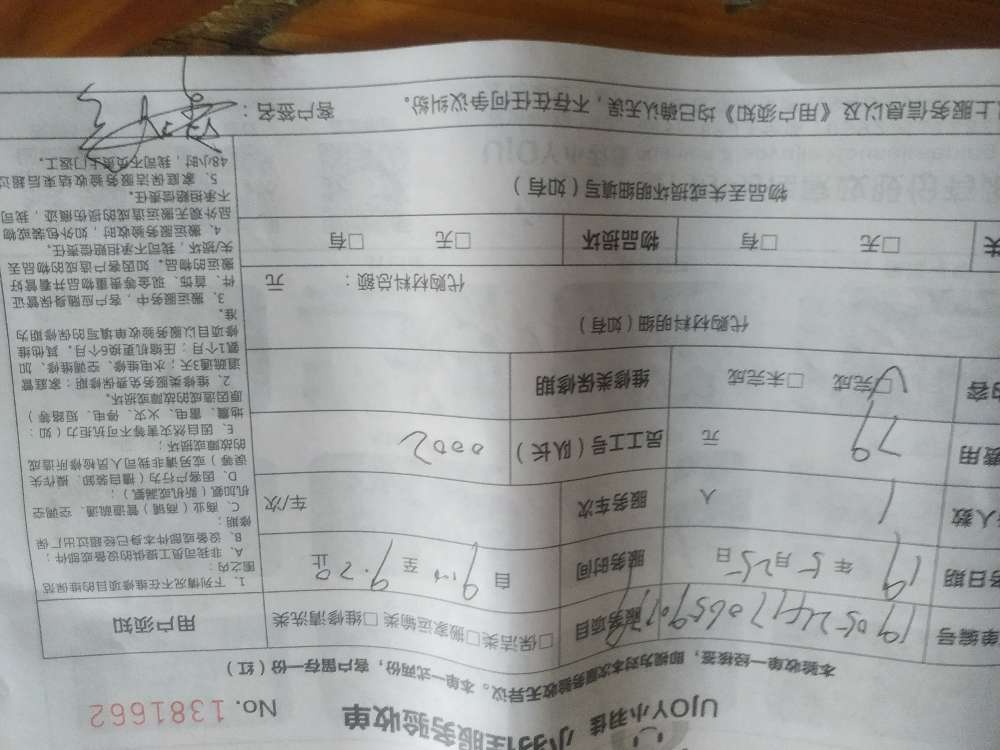 UJOY小羽佳 小羽佳服务验收单 No. 1381662
本验收单一经核签，即视为对本次服务验收无异议。本单一式两份，客户留存一份（红）
单编号 服务项目 □保洁类□搬家运输类□维修清洗类 用户须知
务日期 19 年 5 月 25 日 服务时间 自 至 9.29 止
人数 1 人 服务车次 车/次
费用 79 元 员工工号（队长） 0002
内容 □完成 □未完成 维修类保修期
代购材料明细（如有）
代购材料总额： 元
失 □无 □有 物品损坏 □无 □有
物品丢失或损坏明细填写（如有）
1. 下列情况不在维修项目的维保范
围之内：
A、非我司员工提供的设备或部件；
B、设备或部件本身已经超过出厂保
修期；
C、商业（商铺）管道疏通、空调空
机加氨（新机或漏氟）；
D、因客户行为（擅自装卸、操作失
误等）或另请非我司人员检修所造成
的故障或损坏；
E、因自然灾害等不可抗拒力（如：
地震、雷电、火灾、停电、短路等）
原因造成的故障或损坏。
2、维修类服务免费保修期：家庭管
道疏通3天；水电维修、空调维修、加
氨1个月；压缩机更换6个月，其他维
修项目以服务验收单填写的保修期为
准。
3、搬运服务中，客户应随身保管证
件、首饰、现金等贵重物品并看管好
搬运的物品。如因客户造成的物品丢
失损坏，我司不承担赔偿责任。
4、搬运服务验收时，如外包装或物
品外观无搬运造成的损伤痕迹，我司
不承担赔偿责任。
5、家庭保洁服务验收结束后超过
48小时，我司不负责上门返工。
上服务信息以及《用户须知》均已确认无误，不存在任何争议纠纷。 客户签名：